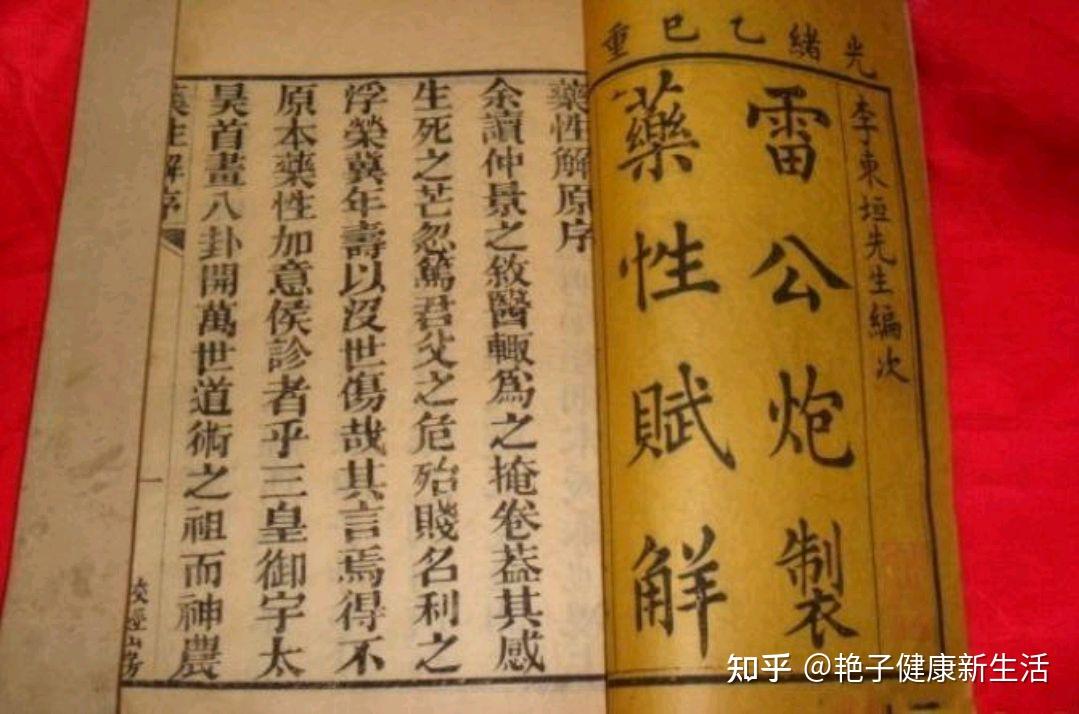 光緒乙巳重
李東垣先生編次
雷公炮製
藥性賦解
藥性解原序
余讀仲景之敘醫輒爲之掩卷葢其感
生死之芒忽篤君父之危殆賤名利之
浮榮冀年壽以沒世傷哉其言焉得不
原本藥性加意侯診者乎三皇御宇太
昊首畫八卦開萬世道術之祖而神農
藥性解序
一
山房
知乎 @艳子健康新生活